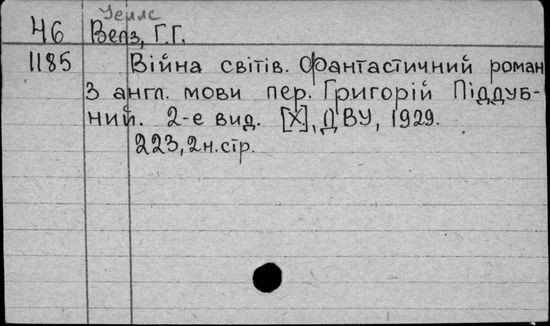 Уеллс
46 Велз, Г.Г.
1185 Війна світів. Фантастичний роман
З англ. мови пер. Григорій Піддуб-
ний. 2-е вид. [Х], ДВУ, 1929.
223, 2н.стр.